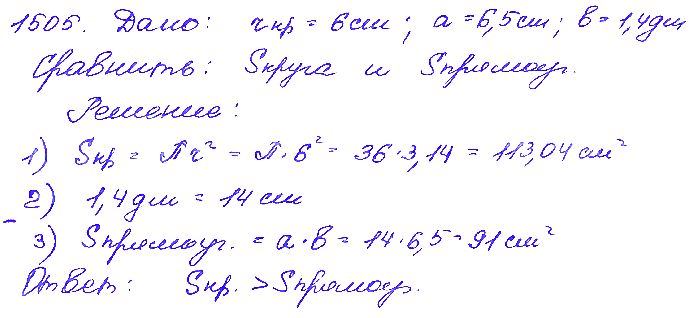 1505. Дано: rкр = 6 см; a = 6,5 см; b = 1,4 дм
Сравнить: Sкруга и Sпрямоуг.
Решение:
1) Sкр = πr² = π·6² = 36·3,14 = 113,04 см²
2) 1,4 дм = 14 см
3) Sпрямоуг. = a·b = 14·6,5 = 91 см²
Ответ: Sкр. > Sпрямоуг.